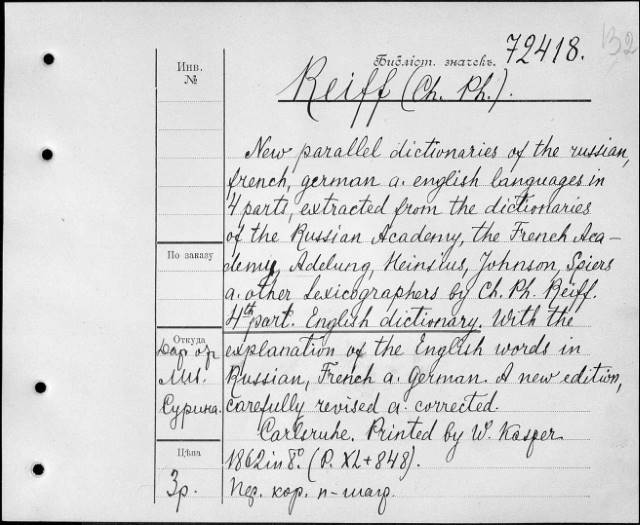 132
Библіот. значекъ. 72418.
Инв.
№
Reiff (Ch. Ph.).
New parallel dictionaries of the russian,
french, german a. english languages in
4 parts, extracted from the dictionaries
of the Russian Academy, the French Aca-
demy, Adelung, Heinsius, Johnson, Spiers
По заказу
a. other Lexicographers by Ch. Ph. Reiff.
4th part. English dictionary. With the
Откуда
explanation of the English words in
Russian, French a. German. A new edition,
Сурина.
carefully revised a. corrected.
Carlsruhe. Printed by W. Kasper
Цѣна
1862 in 8°. (P. XL + 848).
3р.
Пер. кор. п-шагр.